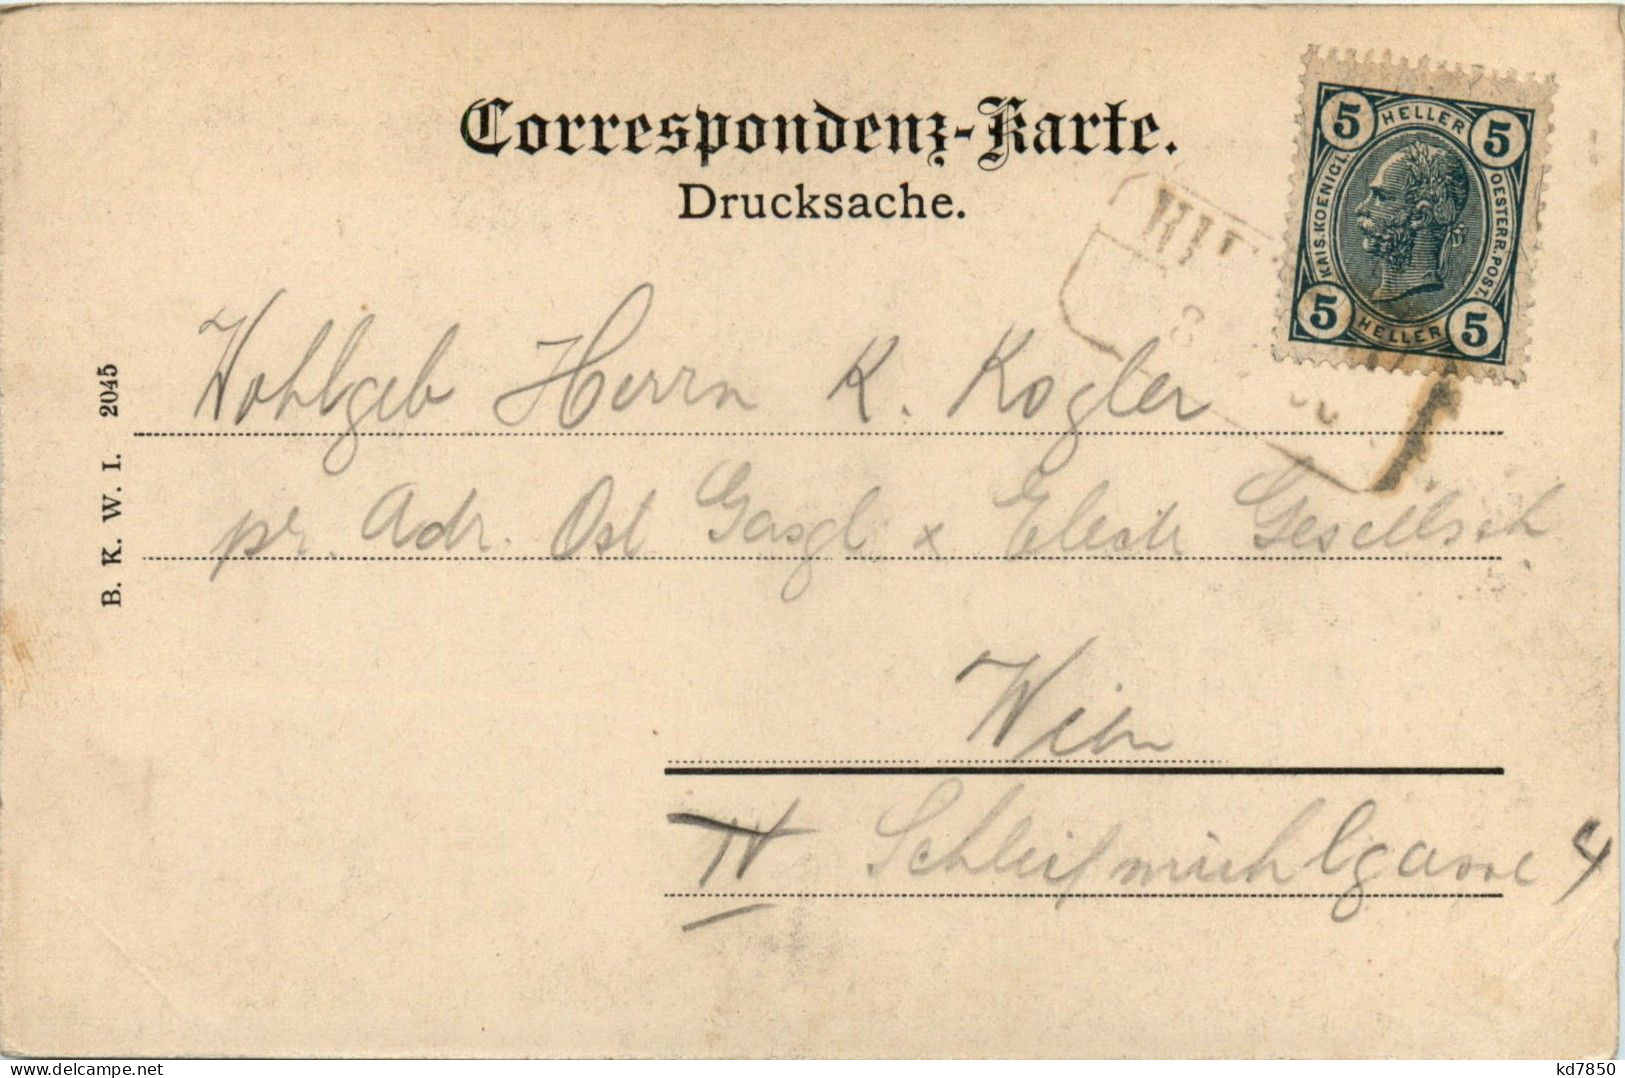 Correspondenz-Karte.
Drucksache.
5 HELLER 5
KAIS. KOENIGL. OESTERR. POST.
5 HELLER 5
B. K. W. I. 2045
Wohlgeb Herrn K. Kogler
pr. Adr. Öst Gasgl x Electr Gesellsch
Wien
IV Schleifmühlgasse 4
kd7850